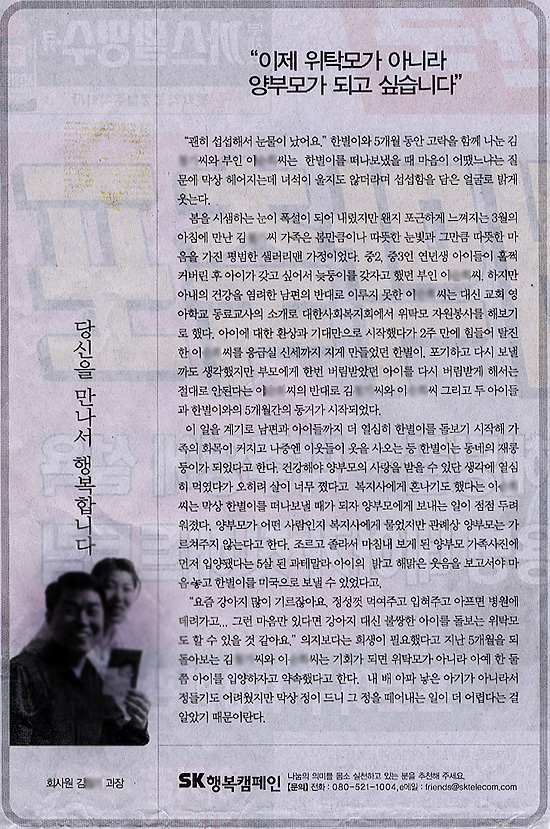 “이제 위탁모가 아니라
양부모가 되고 싶습니다”
“괜히 섭섭해서 눈물이 났어요.” 한별이와 5개월 동안 고락을 함께 나눈 김
씨와 부인 이 씨는 한별이를 떠나보냈을 때 마음이 어땠느냐는 질
문에 막상 헤어지는데 녀석이 울지도 않더라며 섭섭함을 담은 얼굴로 밝게
웃는다.
봄을 시샘하는 눈이 폭설이 되어 내렸지만 왠지 포근하게 느껴지는 3월의
아침에 만난 김 씨 가족은 봄만큼이나 따뜻한 눈빛과 그만큼 따뜻한 마
음을 가진 평범한 샐러리맨 가정이었다. 중2, 중3인 연년생 아이들이 훌쩍
커버린 후 아이가 갖고 싶어서 늦둥이를 갖자고 했던 부인 이 씨. 하지만
아내의 건강을 염려한 남편의 반대로 이루지 못한 이 씨는 대신 교회 영
아학교 동료교사의 소개로 대한사회복지회에서 위탁모 자원봉사를 해보기
로 했다. 아이에 대한 환상과 기대만으로 시작했다가 2주 만에 힘들어 탈진
한 이 씨를 응급실 신세까지 지게 만들었던 한별이. 포기하고 다시 보낼
까도 생각했지만 부모에게 한번 버림받았던 아이를 다시 버림받게 해서는
절대로 안된다는 이 씨의 반대로 김 씨와 이 씨 그리고 두 아이들
과 한별이와의 5개월간의 동거가 시작되었다.
이 일을 계기로 남편과 아이들까지 더 열심히 한별이를 돌보기 시작해 가
족의 화목이 커지고 나중엔 이웃들이 옷을 사오는 등 한별이는 동네의 재롱
둥이가 되었다고 한다. 건강해야 양부모의 사랑을 받을 수 있단 생각에 열심
히 먹였다가 오히려 살이 너무 쪘다고 복지사에게 혼나기도 했다는 이
씨는 막상 한별이를 떠나보낼 때가 되자 양부모에게 보내는 일이 점점 두려
워졌다. 양부모가 어떤 사람인지 복지사에게 물었지만 관례상 양부모는 가
르쳐주지 않는다고 한다. 조르고 졸라서 마침내 보게 된 양부모 가족사진에
먼저 입양됐다는 5살 된 과테말라 아이의 밝고 해맑은 웃음을 보고서야 마
음 놓고 한별이를 미국으로 보낼 수 있었다고.
“요즘 강아지 많이 기르잖아요. 정성껏 먹여주고 입혀주고 아프면 병원에
데려가고... 그런 마음만 있다면 강아지 대신 불쌍한 아이를 돌보는 위탁모
도 할 수 있을 것 같아요.” 의지보다는 희생이 필요했다고 지난 5개월을 되
돌아보는 김 씨와 이 씨는 기회가 되면 위탁모가 아니라 아예 한 둘
쯤 아이를 입양하자고 약속했다고 한다. 내 배 아파 낳은 아기가 아니라서
정들기도 어려웠지만 막상 정이 드니 그 정을 떼어내는 일이 더 어렵다는 걸
알았기 때문이란다.
당신을 만나서 행복합니다
회사원 김 과장
SK 행복캠페인
나눔의 의미를 몸소 실천하고 있는 분을 추천해 주세요.
[문의] 전화 : 080-521-1004, e메일 : friends@sktelecom.com